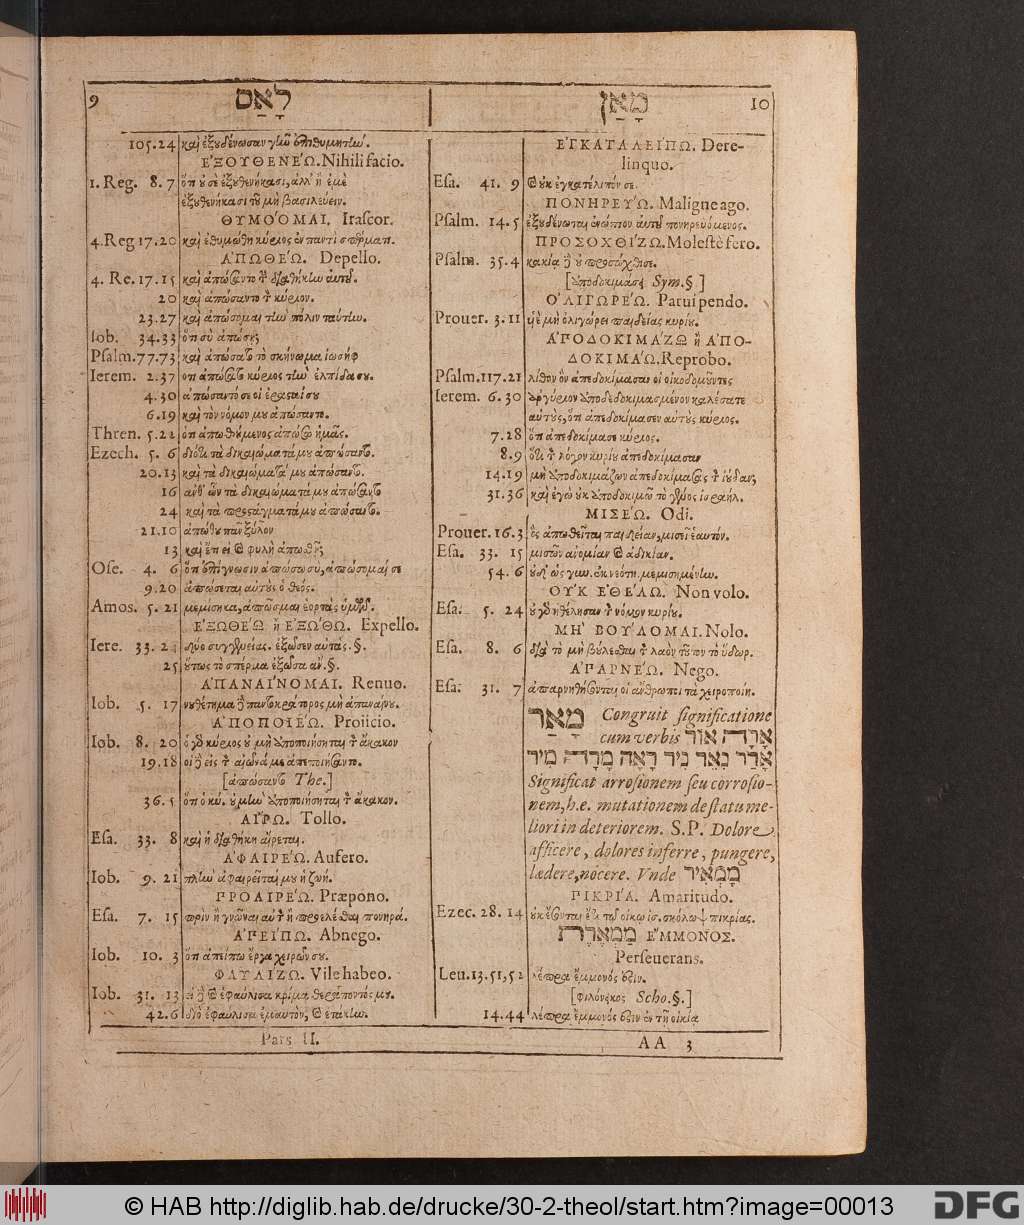 9 לְאַס
105.24 καὶ ἐξουδένωσαν γῆν ἐπιθυμητήν.
ἘΞΟΥΘΕΝΕΏ. Nihili facio.
1. Reg. 8.7 ὅτι οὐ σὲ ἐξουθενήκασι, ἀλλ' ἢ ἐμὲ
ἐξουθενήκασι τοῦ μὴ βασιλεύειν.
ΘΥΜΌΟΜΑΙ. Irascor.
4. Reg 17.20 καὶ ἐθυμώθη κύριος ἐν παντὶ σπέρματι.
ἈΠΩΘΈΩ. Depello.
4. Re. 17.15 καὶ ἀπώσαντο τὴν διαθήκην αὐτοῦ.
20 καὶ ἀπώσαντο τὸν κύριον.
23.27 καὶ ἀπώσομαι τὴν πόλιν ταύτην.
Iob. 34.33 ὅτι σὺ ἀπώσῃ
Psalm. 77.73 καὶ ἀπώσατο τὸ σκήνωμα ἰωσήφ
Ierem. 2.37 ὅτι ἀπώσατο κύριος τὴν ἐλπίδα σου.
4.30 ἀπώσαντό σε οἱ ἐρασταί σου
6.19 καὶ τὸν νόμον μου ἀπώσαντο.
Thren. 5.22 ὅτι ἀπωθούμενος ἀπώσω ἡμᾶς.
Ezech. 5.6 διότι τὰ δικαιώματά μου ἀπώσαντο.
20.13 καὶ τὰ δικαιώματά μου ἀπώσαντο.
16 ἀνθ' ὧν τὰ δικαιώματά μου ἀπώσαντο
24 καὶ τὰ προστάγματά μου ἀπώσαντο.
21.10 ἀπώθου πᾶν ξύλον
13
Ose. 4.6 ὅτι σὺ ἐπίγνωσιν ἀπώσω σὺ, ἀπώσομαί σε
9.20 ἀπώσεται αὐτοὺς ὁ θεός.
Amos. 5.21 μεμίσηκα, ἀπῶσμαι ἑορτὰς ὑμῶν.
ἘΞΩΘΈΩ ἢ ἘΞΏΘΩ. Expello.
Iere. 33.24 δύο συγγενείας. ἐξῶσεν αὐτάς. §.
25 οὕτως τὸ σπέρμα ἐξῶσα ἄν. §.
ἈΠΑΝΑΊΝΟΜΑΙ. Renuo.
Iob. 5.17 νουθέτημα δὲ παντοκράτορος μὴ ἀπαναίνου.
ἈΠΟΠΟΙΈΩ. Proiicio.
Iob. 8.20 ὁ γὸ κύριος οὐ μὴ ἀποποιήσηται τὸν ἄκακον
19.18 οἱ δὲ εἰς τὸν αἰῶνά με ἀπεποιήσαντο.
[ἀπώσαντο The.]
36.5 ὅτι ὁ κύ. οὐ μὴ ἀποποιήσηται τὸν ἄκακον.
ΑἼΡΩ. Tollo.
Esa. 33.8 καὶ ἡ διαθήκη αἴρεται.
ἈΦΑΙΡΈΩ. Aufero.
Iob. 9.21 πλὴν ἀφαιρεῖταί μου ἡ ζωή.
ΠΡΟΑΙΡΈΩ. Præpono.
Esa. 7.15 πρὶν ἢ γνῶναι αὐτὸν ἢ προελέσθαι πονηρά.
ἈΠΕΊΠΩ. Abnego.
Iob. 10.3 ὅτι ἀπείπω ἔργα χειρῶν σου.
ΦΑΥΛΊΖΩ. Vile habeo.
Iob. 31.13 εἰ δὲ καὶ ἐφαύλισα κρίμα θεράποντός μου.
42.6 διὸ ἐφαύλισα ἐμαυτὸν, καὶ ἐτάκην.
Pars II.
מָאַן 10
ἘΓΚΑΤΑΛΕΊΠΩ. Dere-
linquo.
Esa. 41.9 καὶ οὐκ ἐγκατέλιπόν σε.
ΠΟΝΗΡΕΎΩ. Maligne ago.
Psalm. 14.5 ἐξουδένωται ἐνώπιον αὐτοῦ πονηρευόμενος.
ΠΡΟΣΟΧΘΊΖΩ. Molestè fero.
Psalm. 35.4 κακίᾳ δὲ οὐ προσώχθισε.
[ἀποδοκιμάσῃ Sym. §]
ὈΛΙΓΩΡΈΩ. Parui pendo.
Prouer. 3.11 υἱὲ μὴ ὀλιγώρει παιδείας κυρίου.
ἈΠΟΔΟΚΙΜΆΖΩ ἢ ἈΠΟ-
ΔΟΚΙΜΆΩ. Reprobo.
Psalm. 117.21 λίθον ὃν ἀπεδοκίμασαν οἱ οἰκοδομοῦντες
Ierem. 6.30 ἀργύριον ἀποδεδοκιμασμένον καλέσατε
αὐτοὺς, ὅτι ἀπεδοκίμασεν αὐτοὺς κύριος.
7.28 ὅτι ἀπεδοκίμασε κύριος.
8.9 ὅτι τὸν λόγον κυρίου ἀπεδοκίμασαν
14.19 μὴ ἀποδοκιμάζων ἀπεδοκίμασας τὸν ἰούδαν;
31.36 καὶ ἐγὼ οὐκ ἀποδοκιμῶ τὸ γένος ἰσραήλ.
ΜΙΣΈΩ. Odi.
Prouer. 16.3 ὃς ἀπωθεῖται παιδείαν, μισεῖ ἑαυτόν.
Esa. 33.15 μισῶν ἀνομίαν καὶ ἀδικίαν.
54.6 οὐδ' ὡς γυν. ἐκ νεότη. μεμισημένην.
ΟΥΚ ἘΘΈΛΩ. Non volo.
Esa. 5.24 οὐ γὸ ἠθέλησαν τὸν νόμον κυρίου.
ΜΗ' ΒΟΎΛΟΜΑΙ. Nolo.
Esa. 8.6 διὰ τὸ μὴ βούλεσθαι τὸν λαὸν τοῦτον τὸ ὕδωρ.
ἈΠΑΡΝΈΩ. Nego.
Esa. 31.7 ἀπαρνηθήσονται οἱ ἄνθρωποι τὰ χειροποίη.
מָאַר Congruit significatione
cum verbis אָרָה אוֹר
אָרַר נִאֵר נִיר רָאָה מָרָה מִיר
Significat arrosionem seu corrosio-
nem, h.e. mutationem de statu me-
liori in deteriorem. S.P. Dolore
afficere, dolores inferre, pungere,
lædere, nocere. Vnde מַמְאִיר
ΠΙΚΡΊΑ. Amaritudo.
Ezec. 28.14 οὐκ ἔσονται ἔτι τῷ οἴκῳ ἰσ. σκόλοψ πικρίας.
מַמְאֶרֶת ἜΜΜΟΝΟΣ.
Perseuerans.
Leu. 13.51,52 λέπρα ἔμμονός ἐστιν.
[φιλόνεικος Scho. §.]
14.44 λέπρα ἔμμονός ἐστιν ἐν τῇ οἰκίᾳ
AA 3
© HAB http://diglib.hab.de/drucke/30-2-theol/start.htm?image=00013
DFG